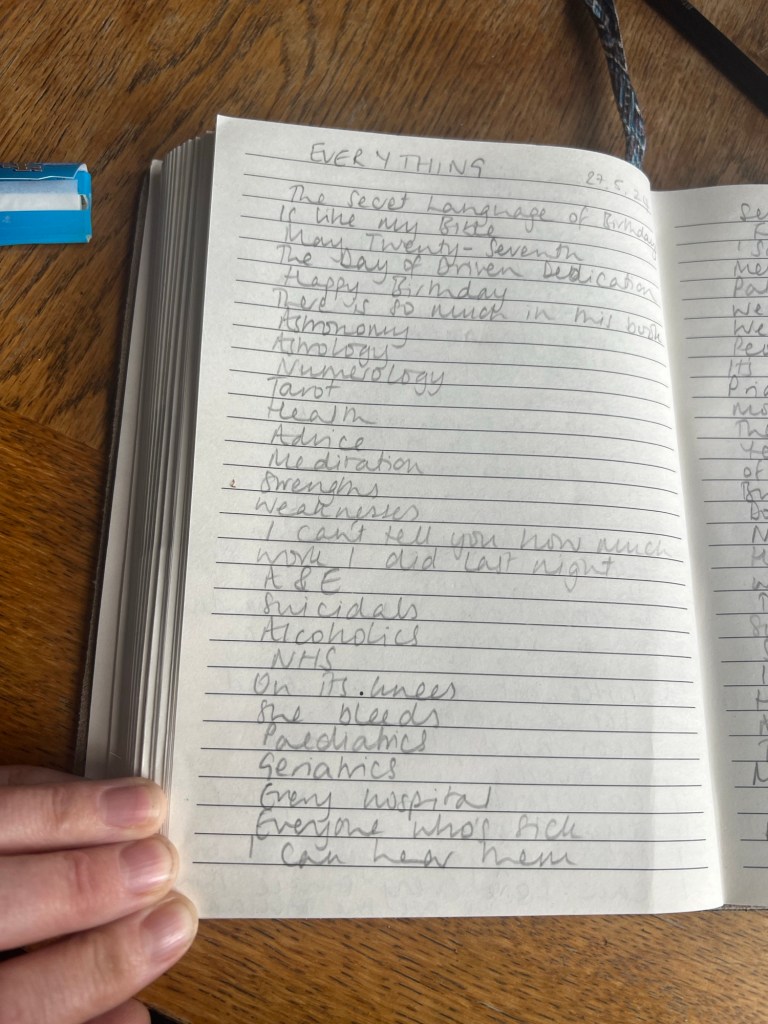 EVERYTHING
27.5.
The Secret Language of Birthday
Is like my Bible
May Twenty-Seventh
The Day of Driven Dedication
Happy Birthday
There is so much in this book
Astronomy
Astrology
Numerology
Tarot
Health
Advice
Meditation
Strengths
Weaknesses
I can't tell you how much
work I did last night
A & E
Suicidals
Alcoholics
NHS
On its knees
She bleeds
Paediatrics
Geriatrics
Every hospital
Everyone who's sick
I can hear them